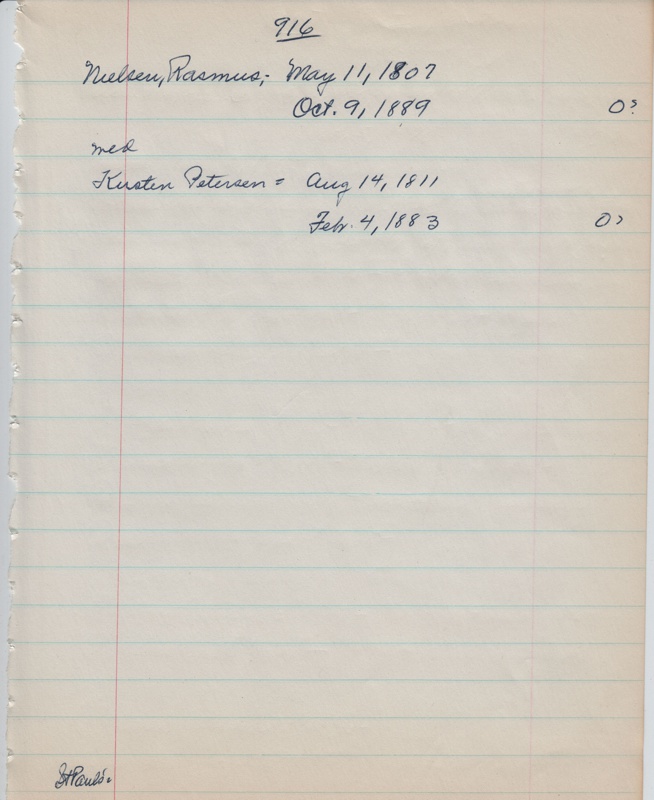 916
Nielsen, Rasmus,- May 11, 1807
Oct. 9, 1889 0?
med
Kirsten Petersen = Aug 14, 1811
Feb. 4, 1883 0?
St Paul's.